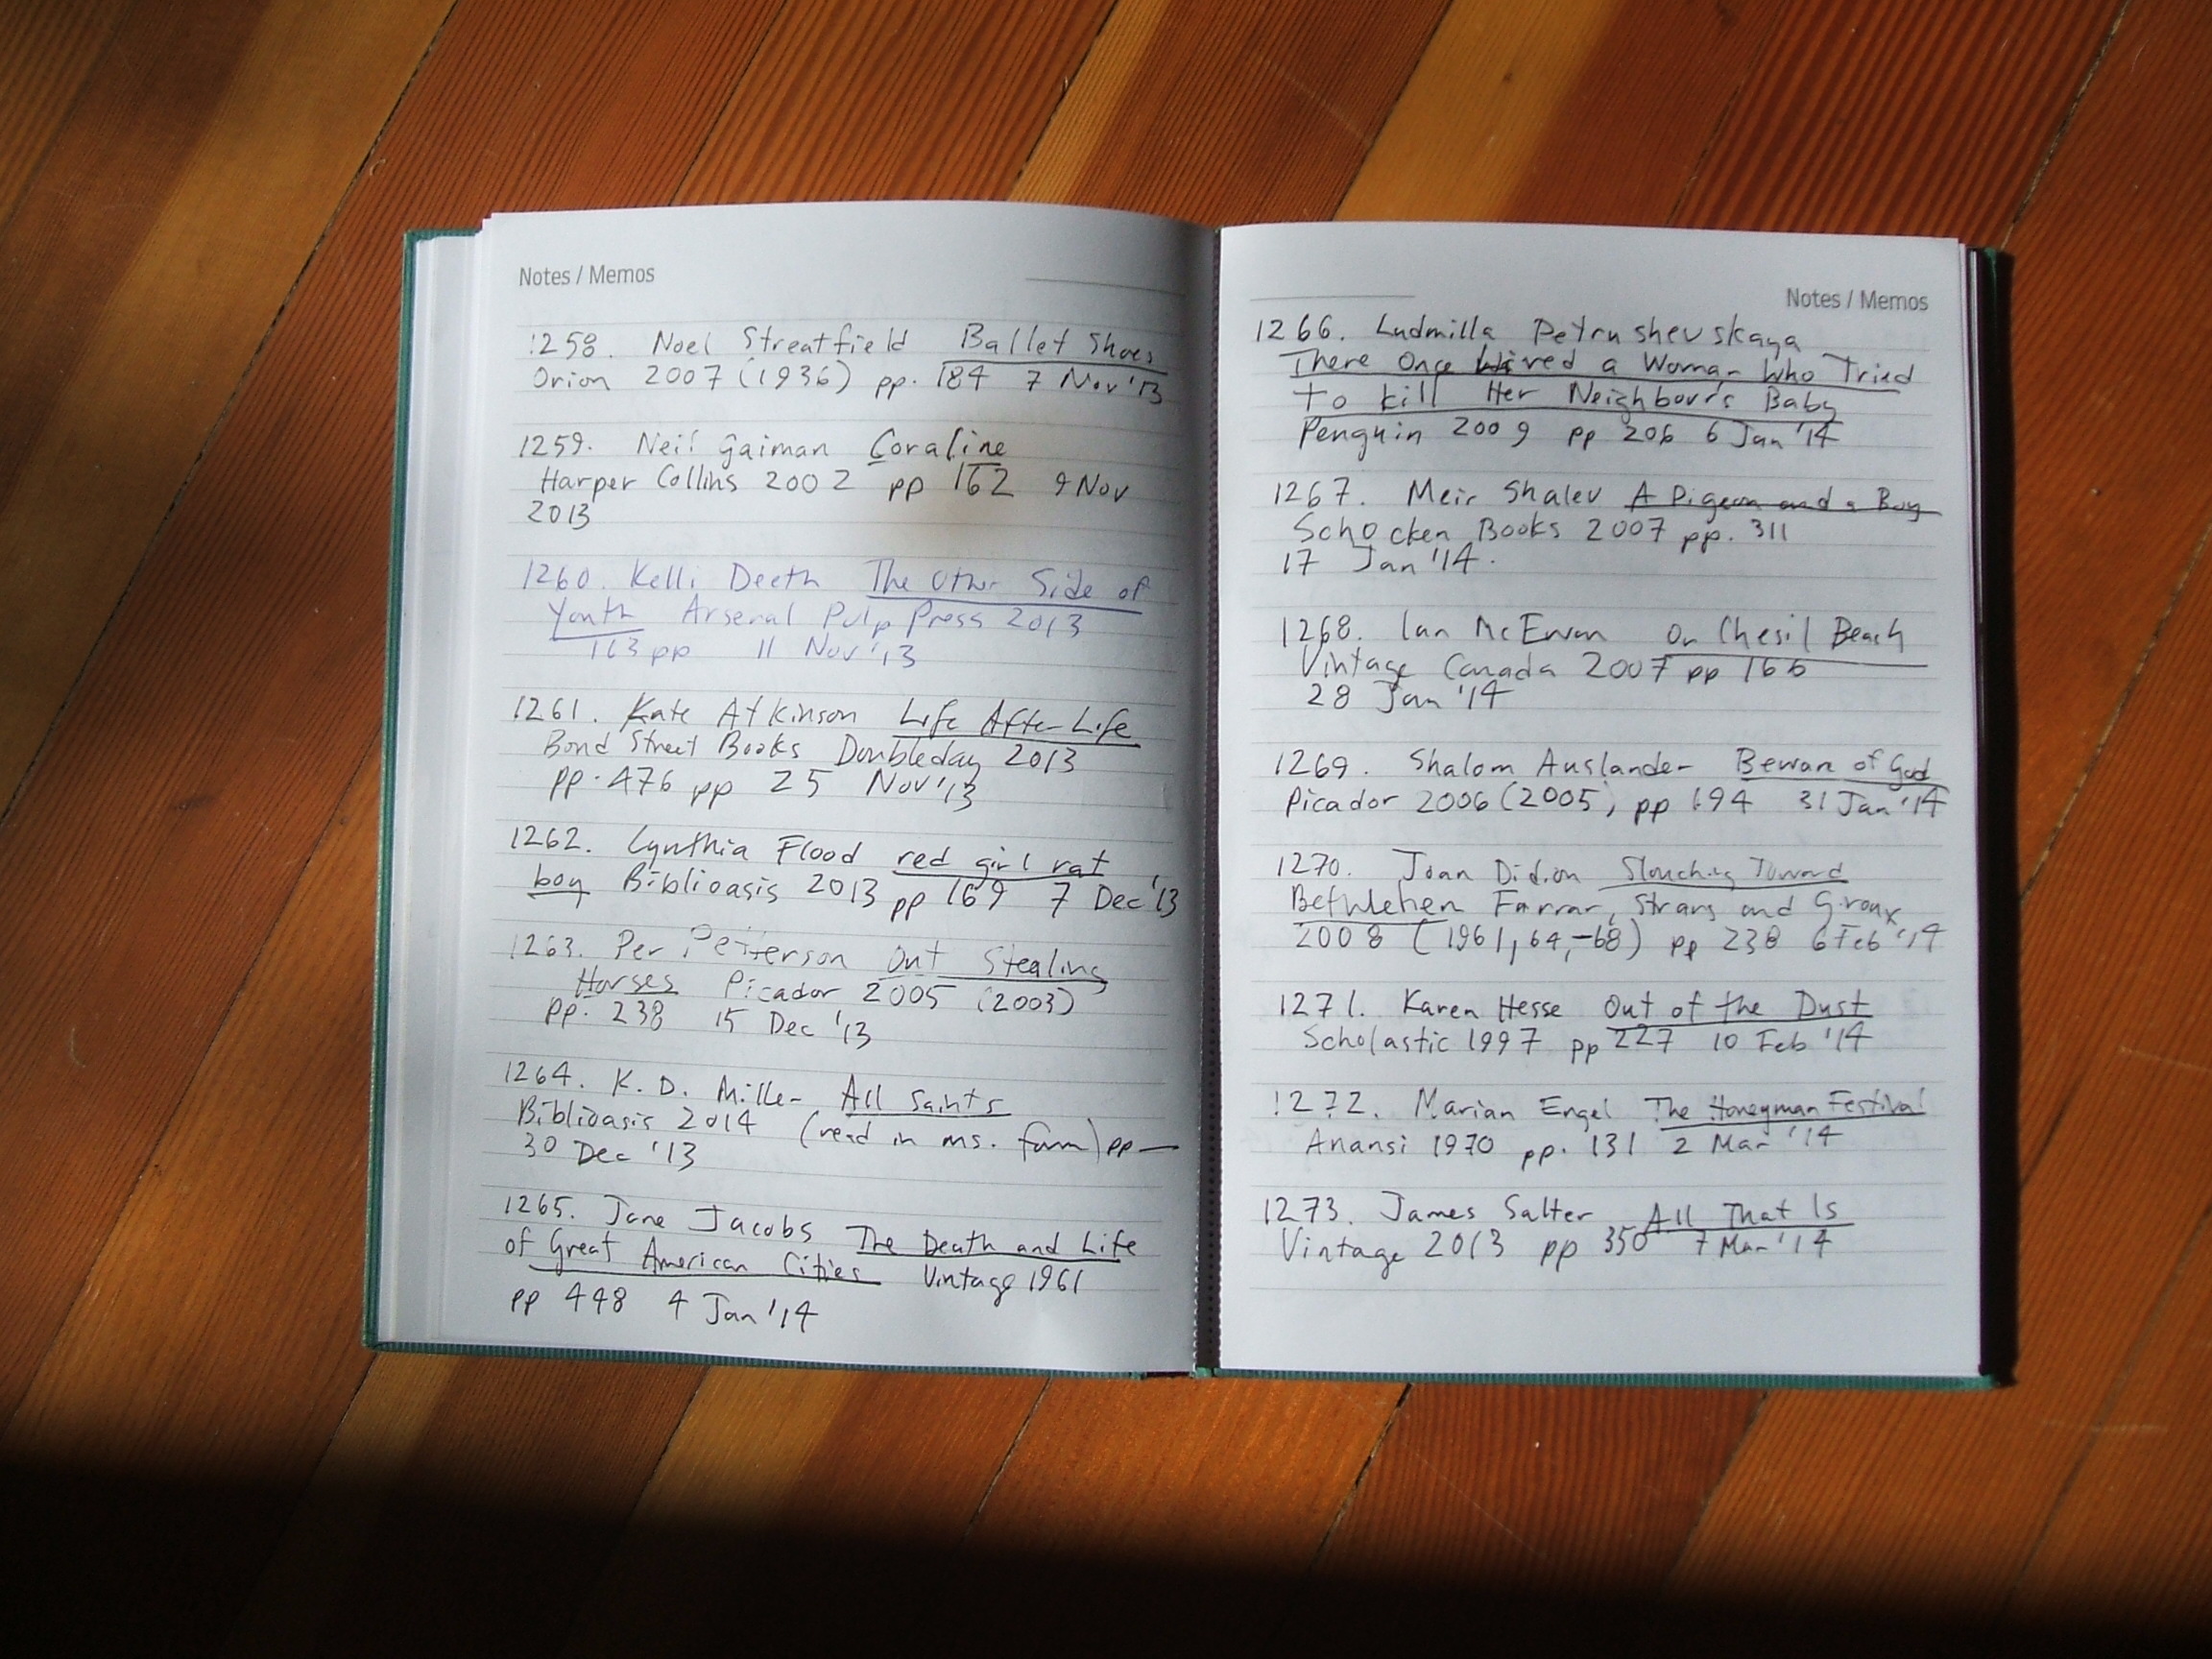 Notes / Memos
1258. Noel Streatfield Ballet Shoes
Orion 2007 (1936) pp. 184 7 Nov '13
1259. Neil Gaiman Coraline
Harper Collins 2002 pp 162 9 Nov
2013
1260. Kelli Deeth The Other Side of
Youth Arsenal Pulp Press 2013
163 pp 11 Nov '13
1261. Kate Atkinson Life After Life
Bond Street Books Doubleday 2013
pp. 476 pp 25 Nov '13
1262. Cynthia Flood red girl rat
boy Biblioasis 2013 pp 169 7 Dec '13
1263. Per Petterson Out Stealing
Horses Picador 2005 (2003)
pp. 238 15 Dec '13
1264. K. D. Miller All Saints
Biblioasis 2014 (read in ms. form) pp —
30 Dec '13
1265. Jane Jacobs The Death and Life
of Great American Cities Vintage 1961
pp 448 4 Jan '14
Notes / Memos
1266. Ludmilla Petrushevskaya
There Once Lived a Woman Who Tried
to kill Her Neighbour's Baby
Penguin 2009 pp 206 6 Jan '14
1267. Meir Shalev A Pigeon and a Boy
Schocken Books 2007 pp. 311
17 Jan '14.
1268. Ian McEwan On Chesil Beach
Vintage Canada 2007 pp 166
28 Jan '14
1269. Shalom Auslander Beware of God
Picador 2006 (2005) pp 194 31 Jan '14
1270. Joan Didion Slouching Toward
Bethlehem Farrar, Straus and Giroux
2008 (1961, 64,-68) pp 238 6 Feb '14
1271. Karen Hesse Out of the Dust
Scholastic 1997 pp 227 10 Feb '14
1272. Marian Engel The Honeyman Festival
Anansi 1970 pp. 131 2 Mar '14
1273. James Salter All That Is
Vintage 2013 pp 350 7 Mar '14